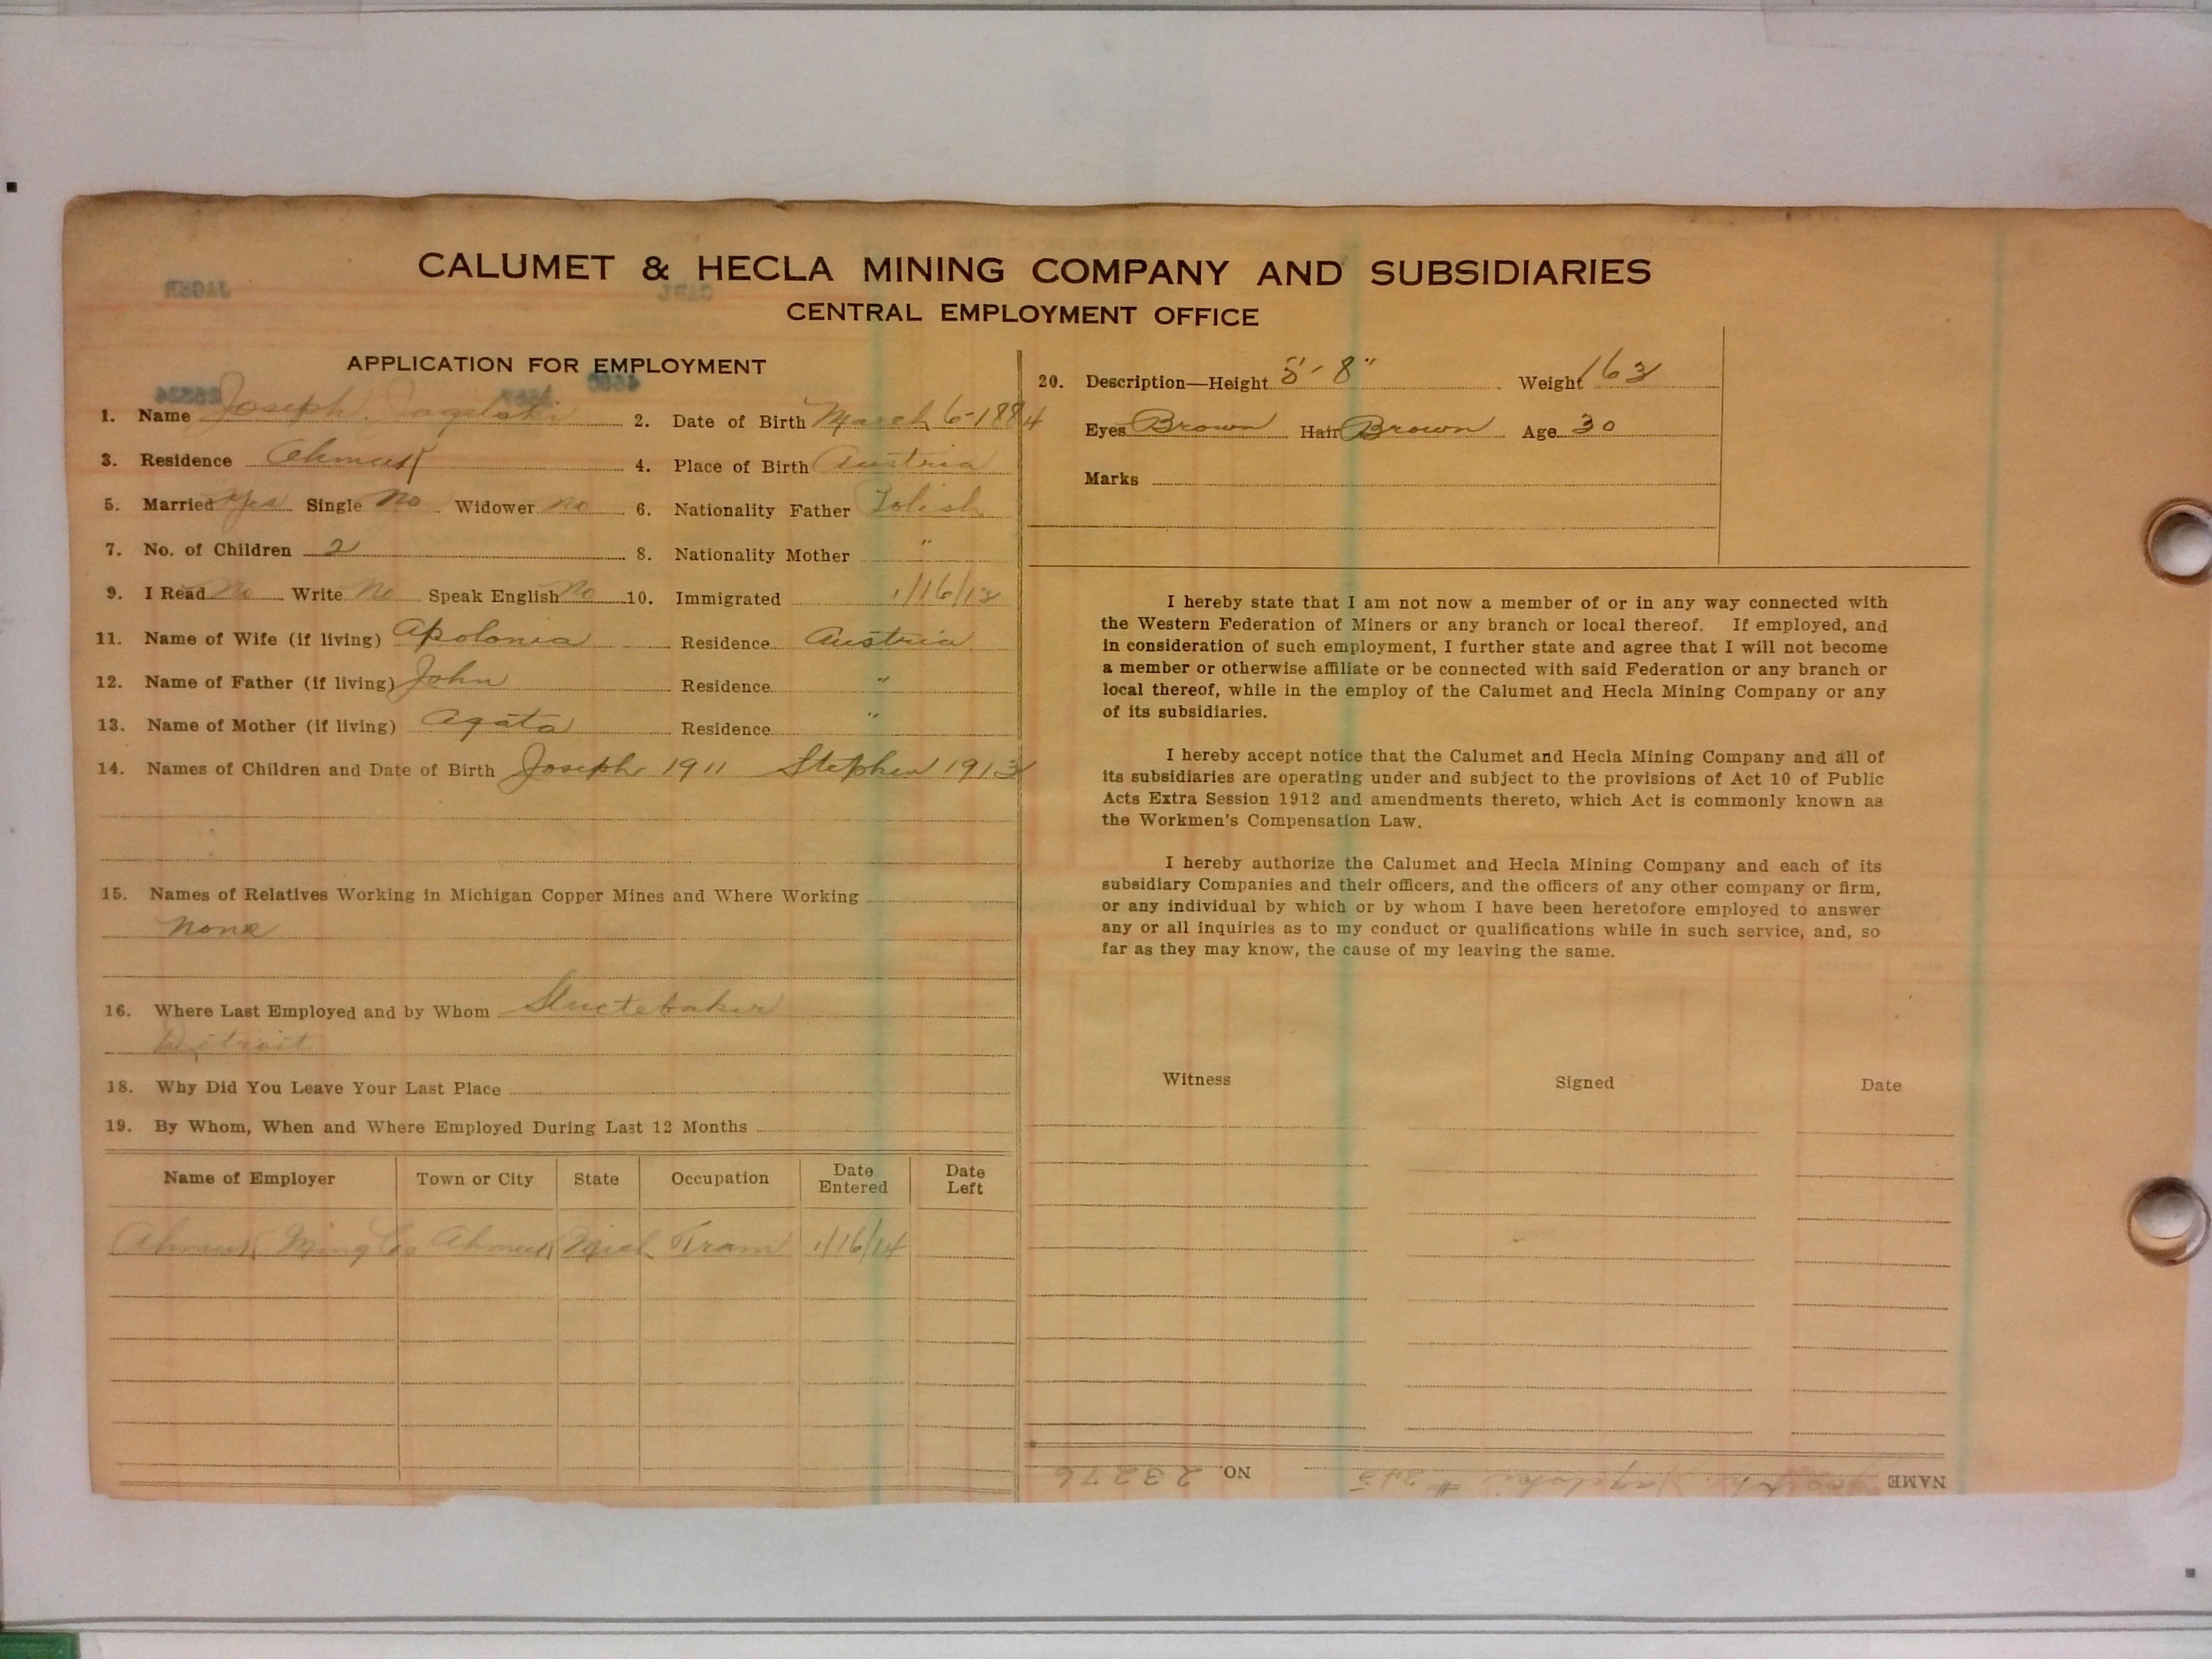 CALUMET & HECLA MINING COMPANY AND SUBSIDIARIES
CENTRAL EMPLOYMENT OFFICE
JAGER CARL
APPLICATION FOR EMPLOYMENT
1. Name Joseph Jagelski 2. Date of Birth March 6-1884
3. Residence Ahmeek 4. Place of Birth Austria
5. Married Yes Single No Widower no 6. Nationality Father Polish
7. No. of Children 2 8. Nationality Mother "
9. I Read No Write No Speak English No 10. Immigrated 1/16/13
11. Name of Wife (if living) Apolonia Residence Austria
12. Name of Father (if living) John Residence "
13. Name of Mother (if living) Agata Residence "
14. Names of Children and Date of Birth Joseph 1911 Stephen 1913
15. Names of Relatives Working in Michigan Copper Mines and Where Working
None
16. Where Last Employed and by Whom Studebaker
Detroit
18. Why Did You Leave Your Last Place
19. By Whom, When and Where Employed During Last 12 Months
Name of Employer Town or City State Occupation Date Entered Date Left
Ahmeek Ming Co Ahmeek Mich Tram 1/16/14
20. Description—Height 5'-8" Weight 163
Eyes Brown Hair Brown Age 30
Marks
I hereby state that I am not now a member of or in any way connected with
the Western Federation of Miners or any branch or local thereof. If employed, and
in consideration of such employment, I further state and agree that I will not become
a member or otherwise affiliate or be connected with said Federation or any branch or
local thereof, while in the employ of the Calumet and Hecla Mining Company or any
of its subsidiaries.
I hereby accept notice that the Calumet and Hecla Mining Company and all of
its subsidiaries are operating under and subject to the provisions of Act 10 of Public
Acts Extra Session 1912 and amendments thereto, which Act is commonly known as
the Workmen's Compensation Law.
I hereby authorize the Calumet and Hecla Mining Company and each of its
subsidiary Companies and their officers, and the officers of any other company or firm,
or any individual by which or by whom I have been heretofore employed to answer
any or all inquiries as to my conduct or qualifications while in such service, and, so
far as they may know, the cause of my leaving the same.
Witness Signed Date
NAME Joseph Jagelski # 345 NO. 23276